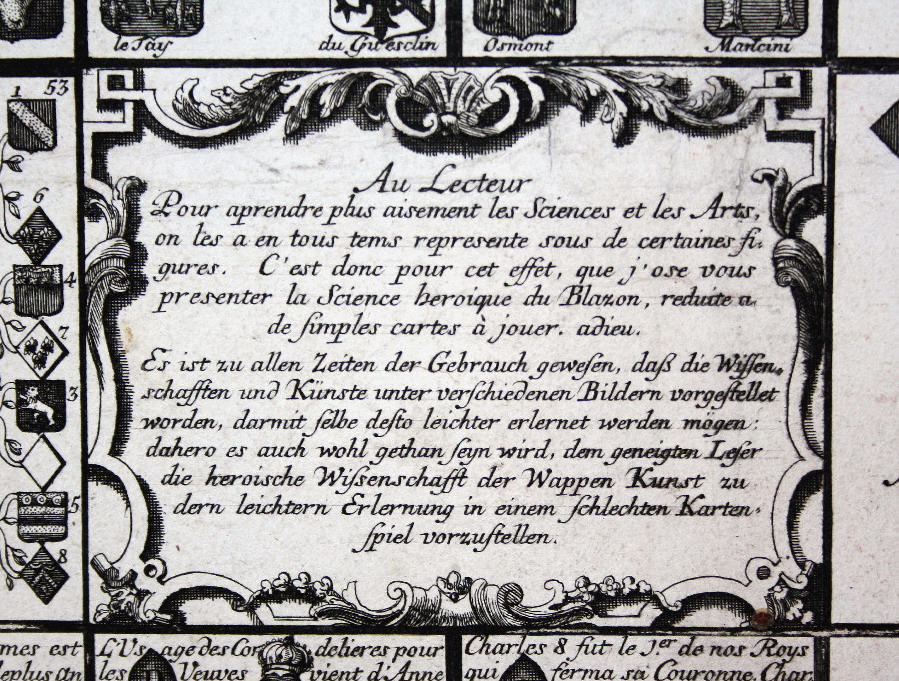 le Tay
du Gu esclin
Osmont
Mancini
1
53
6
4
7
3
5
8
Au Lecteur
Pour aprendre plus aisement les Sciences et les Arts,
on les a en tous tems represente sous de certaines fi-
gures. C'est donc pour cet effet, que j'ose vous
presenter la Science heroique du Blazon, reduite a
de simples cartes à jouer. adieu.
Es ist zu allen Zeiten der Gebrauch gewesen, daß die Wissen-
schafften und Künste unter verschiedenen Bildern vorgestellet
worden, darmit selbe desto leichter erlernet werden mögen:
dahero es auch wohl gethan seyn wird, dem geneigten Leser
die heroische Wissenschafft der Wappen Kunst zu
dern leichtern Erlernung in einem schlechten Karten-
spiel vorzustellen.
mes est
leplus An
L'Us age des Cor delieres pour
les Veuves vient d'Anne
Charles 8 fut le 1.er de nos Roys
qui ferma sa Couronne. Char